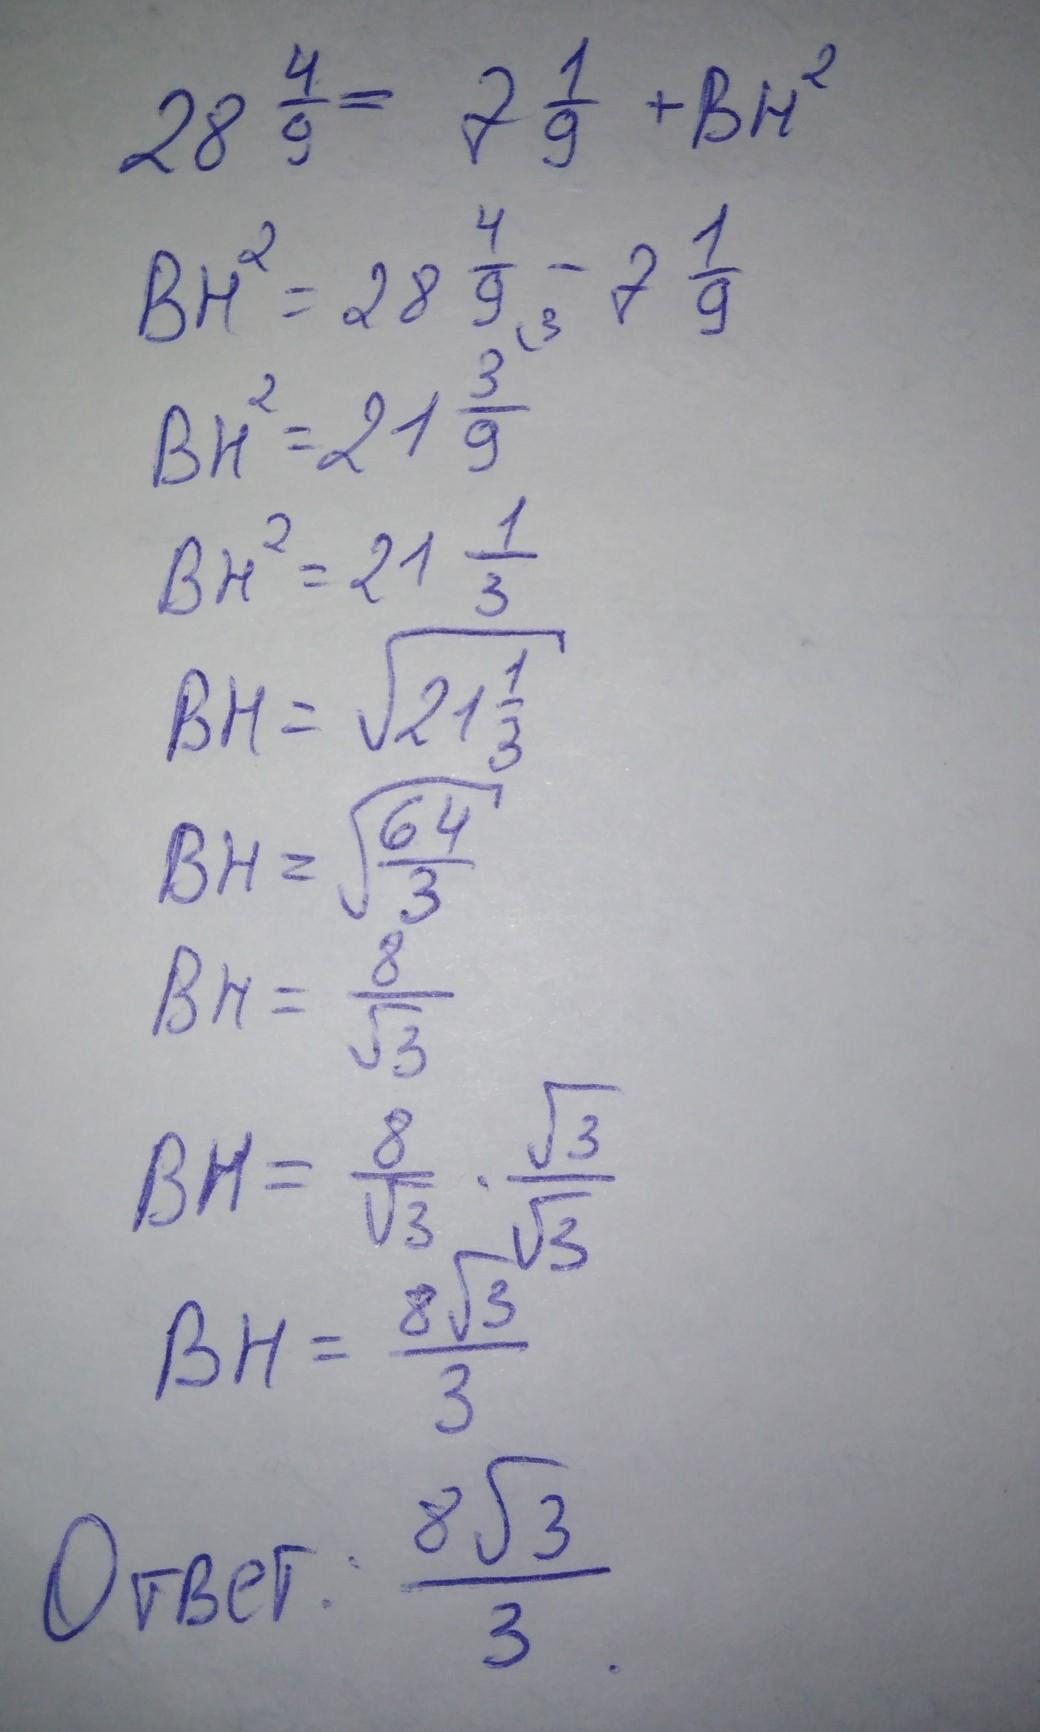 28 4/9 = 7 1/9 + BH²
BH² = 28 4/9 - 7 1/9
BH² = 21 3/9 (3
BH² = 21 1/3
BH = √(21 1/3)
BH = √(64/3)
BH = 8/√3
BH = 8/√3 · √3/√3
BH = 8√3/3
Ответ: 8√3/3.